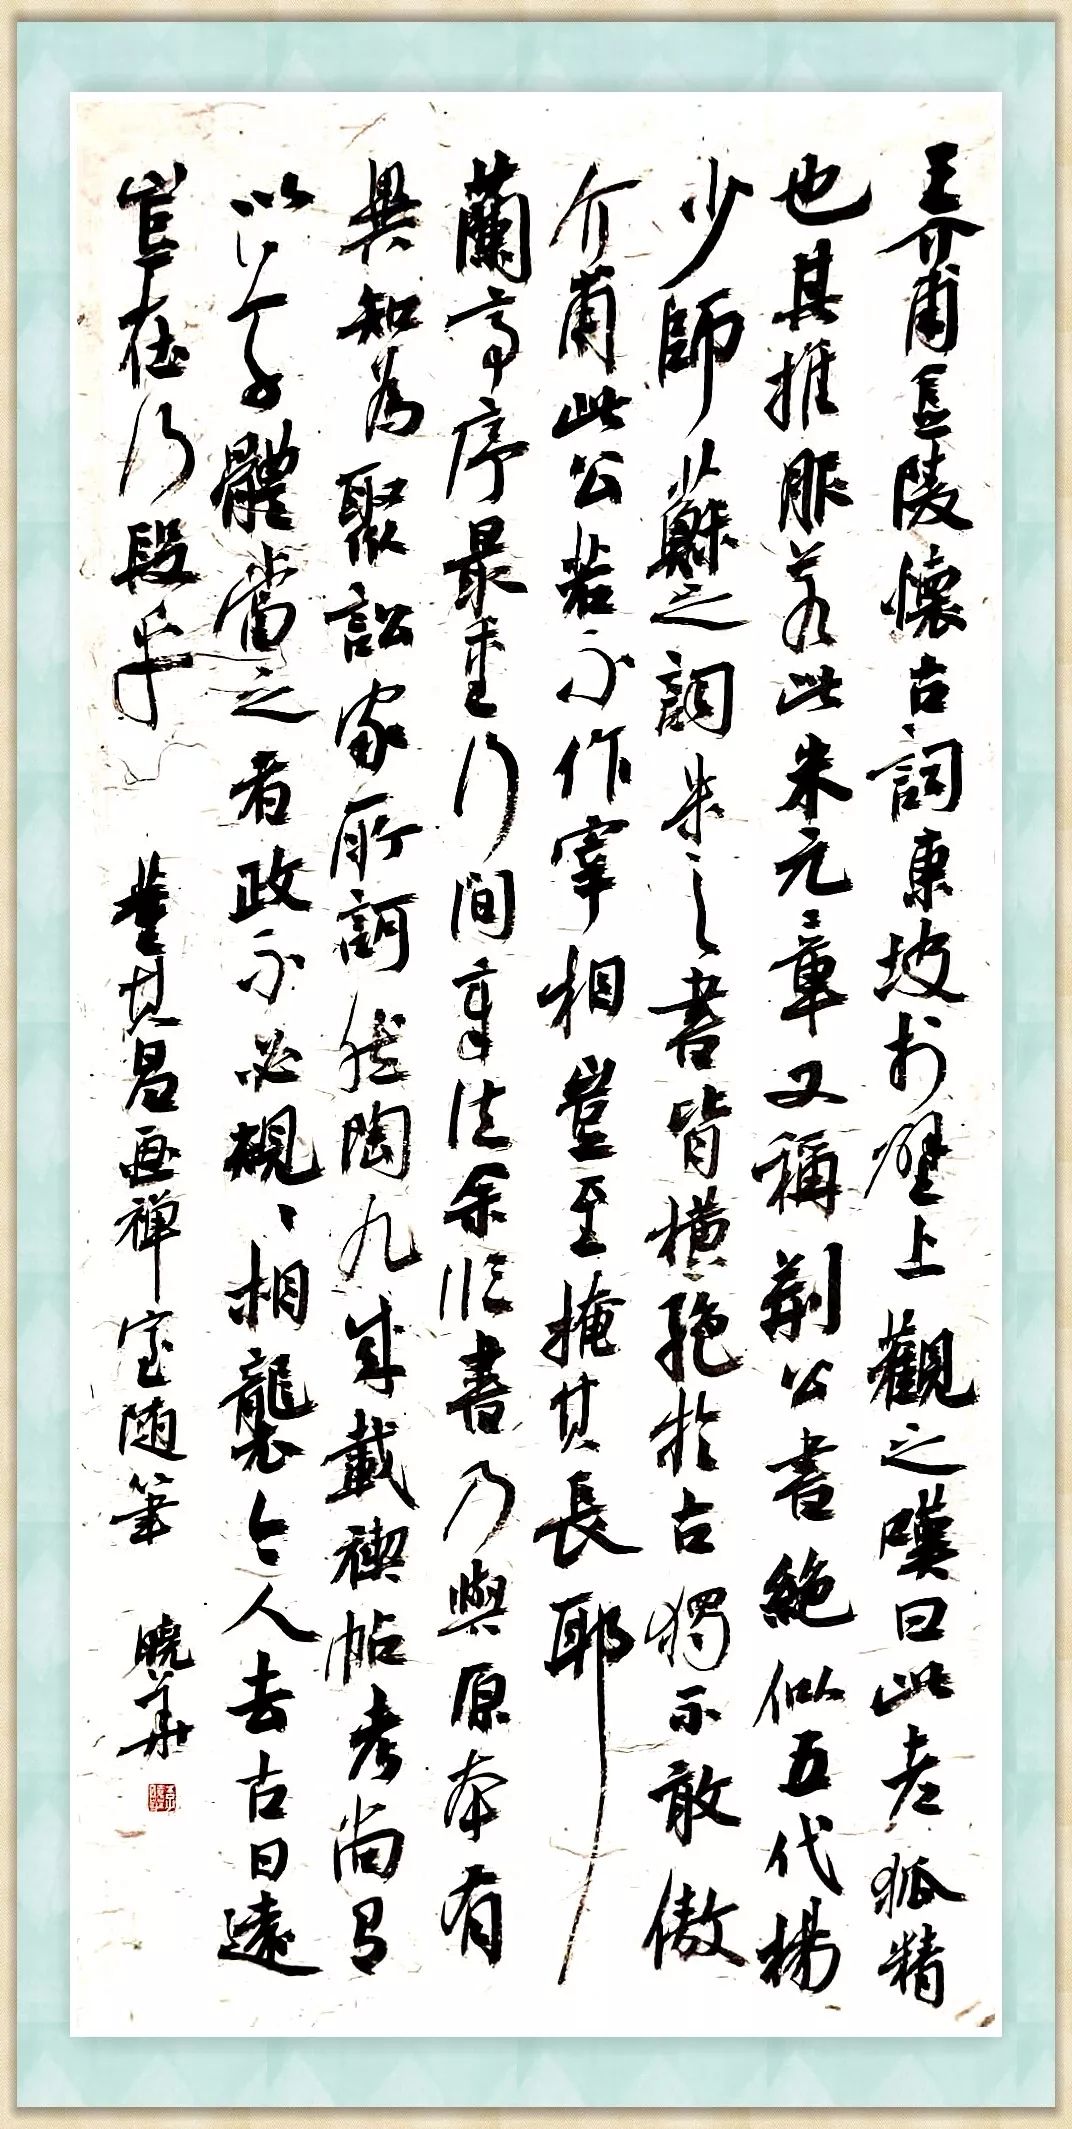 王介甫金陵懷古詞東坡於壁上觀之嘆曰此老狐精
也其推服若此米元章又稱荊公書絕似五代楊
少師蘇之詞米之書皆橫絕於古獨不敢傲
介甫此公若不作宰相豈至掩其長耶
蘭亭序最重行間章法余臨書乃與原本有
異知為聚訟家所訶然陶九成載禊帖考尚有
以體當之者政不必規〻相襲今人去古日遠
豈在行段乎 董其昌画禅室随筆 曉華